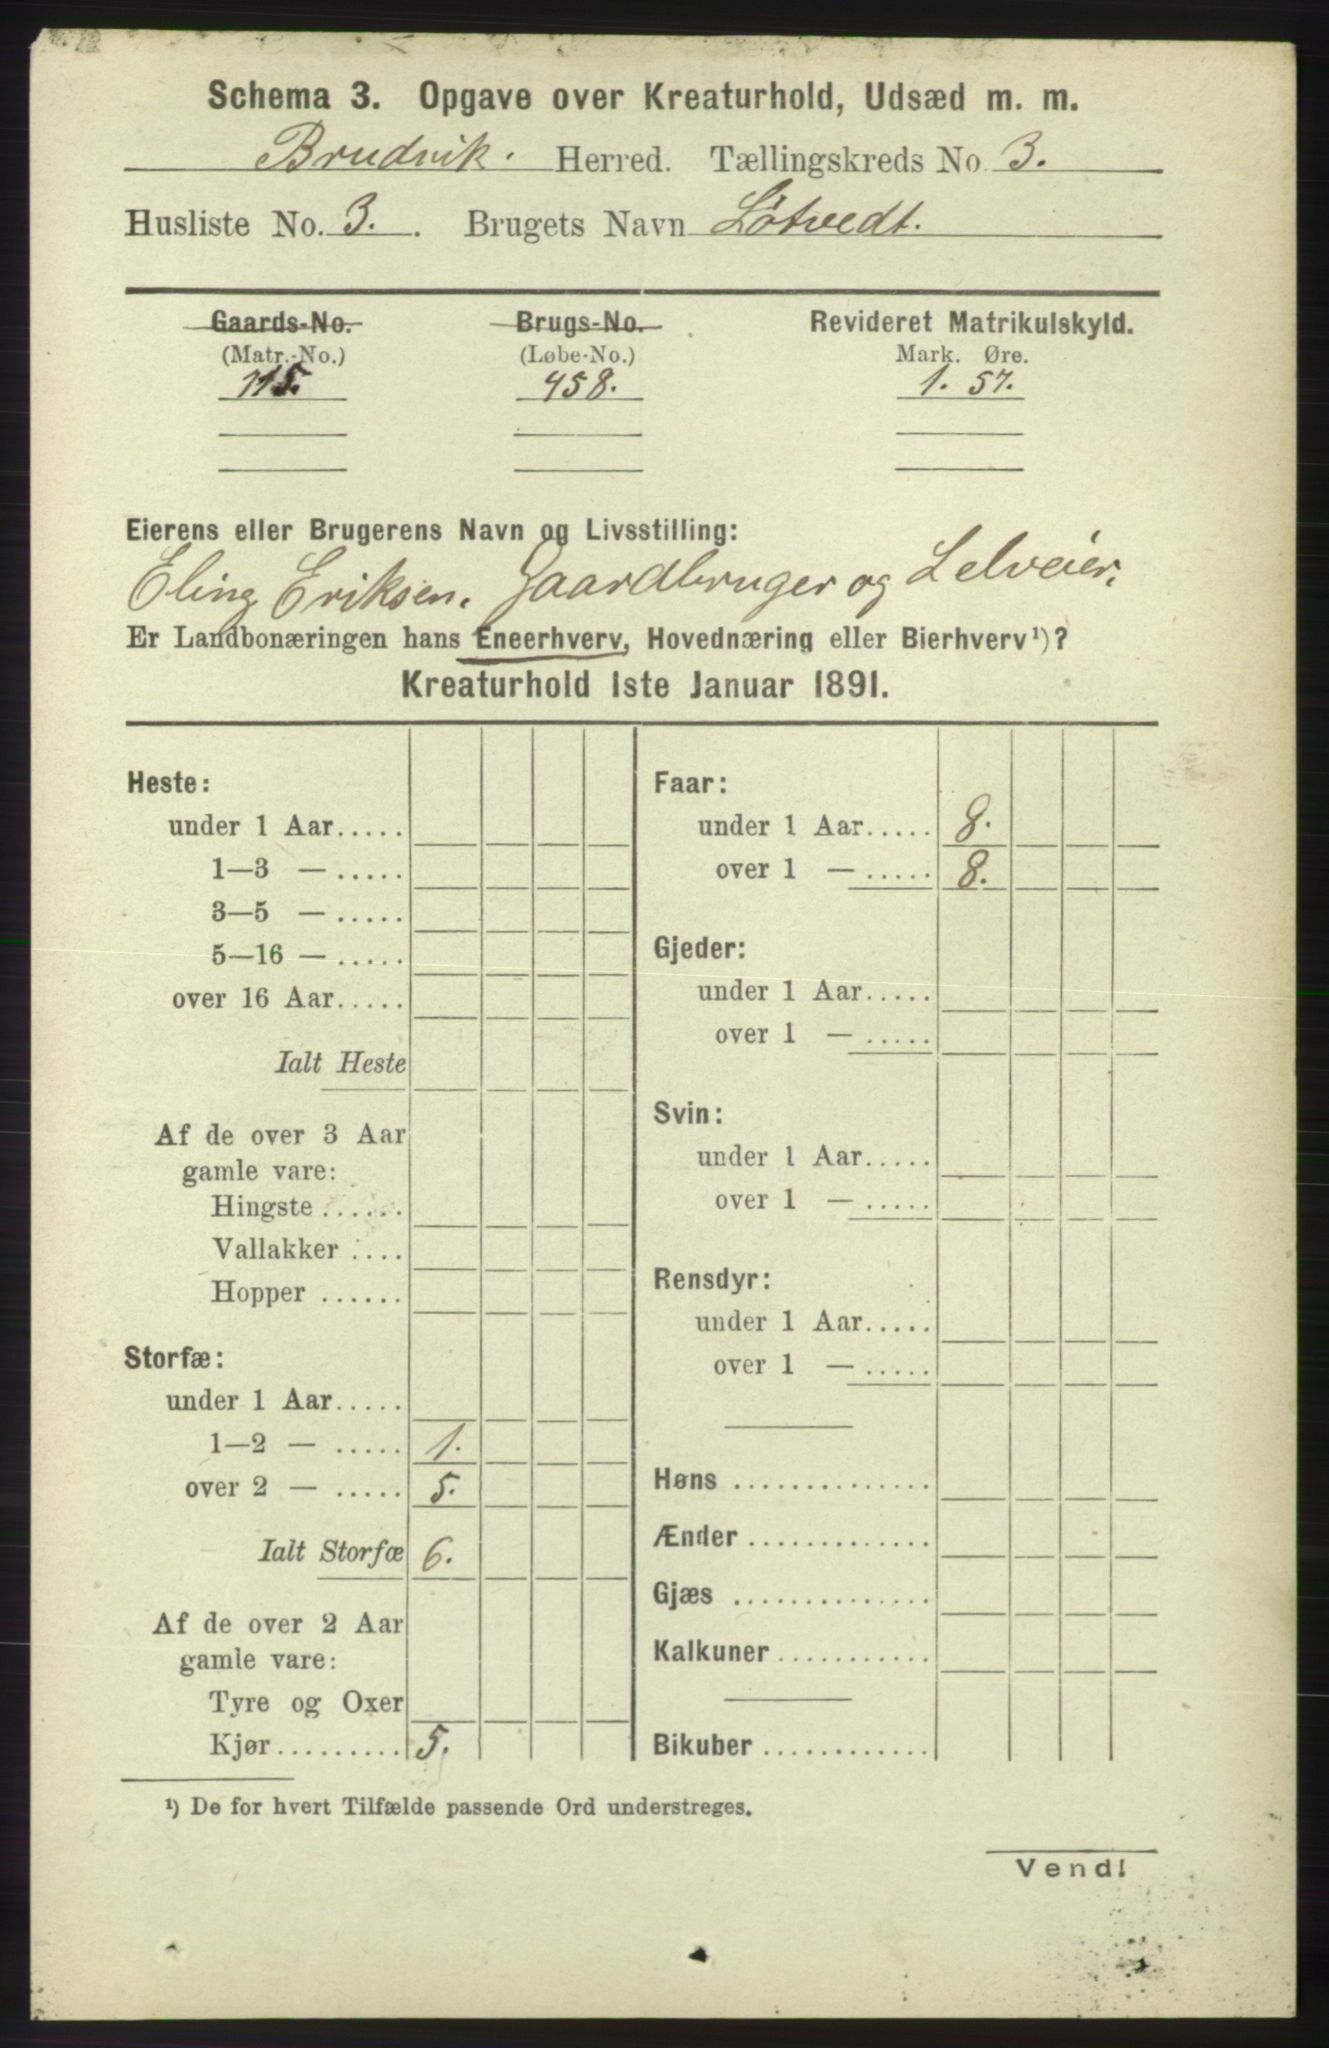 Schema 3. Opgave over Kreaturhold, Udsæd m. m.
Brudvik. Herred. Tællingskreds No. 3.
Husliste No. 3. Brugets Navn Løtvedt.
Gaards-No. Brugs-No. Revideret Matrikulskyld.
(Matr.-No.) (Løbe-No.) Mark. Øre.
115. 458. 1. 57.
Eierens eller Brugerens Navn og Livsstilling:
Eling Eriksen. Gaardbruger og Selveier.
Er Landbonæringen hans Eneerhverv, Hovednæring eller Bierhverv¹)?
Kreaturhold 1ste Januar 1891.
Heste:
under 1 Aar.....
1—3 — .....
3—5 — .....
5—16 — .....
over 16 Aar.....
Ialt Heste
Af de over 3 Aar
gamle vare:
Hingste ......
Vallakker ....
Hopper ......
Storfæ:
under 1 Aar.....
1—2 — ..... 1.
over 2 — ..... 5.
Ialt Storfæ 6.
Af de over 2 Aar
gamle vare:
Tyre og Oxer
Kjør......... 5.
Faar:
under 1 Aar..... 8.
over 1 — ..... 8.
Gjeder:
under 1 Aar.....
over 1 — .....
Svin:
under 1 Aar.....
over 1 — .....
Rensdyr:
under 1 Aar.....
over 1 — .....
Høns ..............
Ænder .............
Gjæs ..............
Kalkuner ...........
Bikuber ............
¹) De for hvert Tilfælde passende Ord understreges.
Vend!